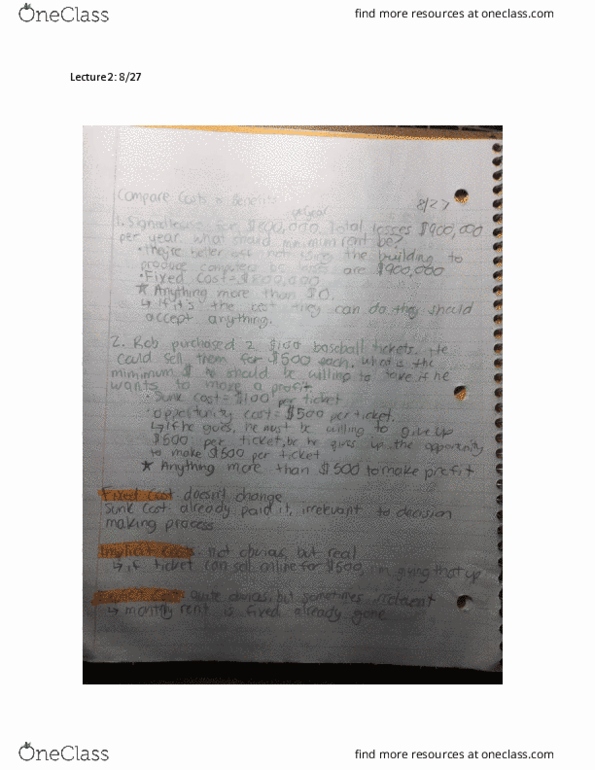 OneClass
find more resources at oneclass.com
Lecture 2: 8/27
Compare Costs & Benefits
8/27
per year
1. Signed lease for $ Total losses $900,000
per year. What should minimum rent be?
• they're better off not using the building to
produce computers bc losses are $900,000
• Fixed Cost =
* Anything more than $0.
↳ if it's the best they can do they should
accept anything.
2. Rob purchased 2 $100 baseball tickets. He
could sell them for $500 each, what is the
minimum $ he should be willing to take if he
wants to make a profit
• Sunk cost = $100 per ticket
• Opportunity cost = $500 per ticket.
↳ if he goes, he must be willing to give up
$500 per ticket, bc he gives up the opportunity
to make $500 per ticket
* Anything more than $500 to make profit
Fixed Cost doesn't change
Sunk Cost already paid it, irrelevant to decision
making process
Implicit Costs not obvious, but real
↳ if ticket can sell online for $500, I'm giving that up
Cost quite obvious, but sometimes irrelevant
↳ monthly rent is fixed, already gone
OneClass
find more resources at oneclass.com